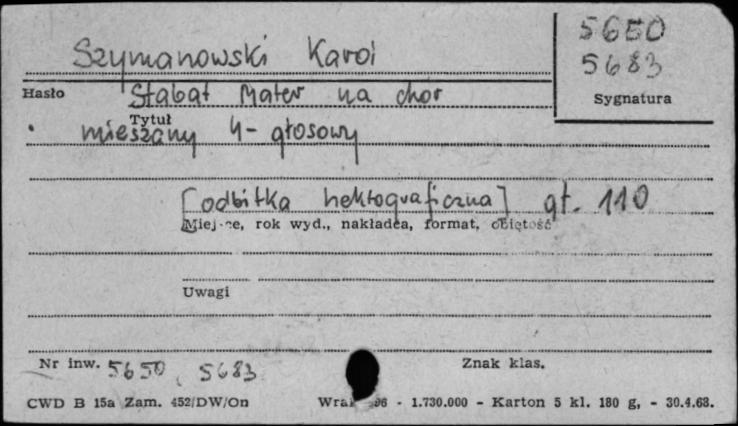 5650
Szymanowski Karol
5683
Hasło
Stabat Mater na chór
Sygnatura
Tytuł
mieszany 4-głosowy
[odbitka hektograficzna] gł. 110
Miejsce, rok wyd., nakładca, format, objętość
Uwagi
Nr inw. 5650, 5683
Znak klas.
CWD B 15a Zam. 452/DW/On
96 - 1.730.000 - Karton 5 kl. 180 g, - 30.4.68.